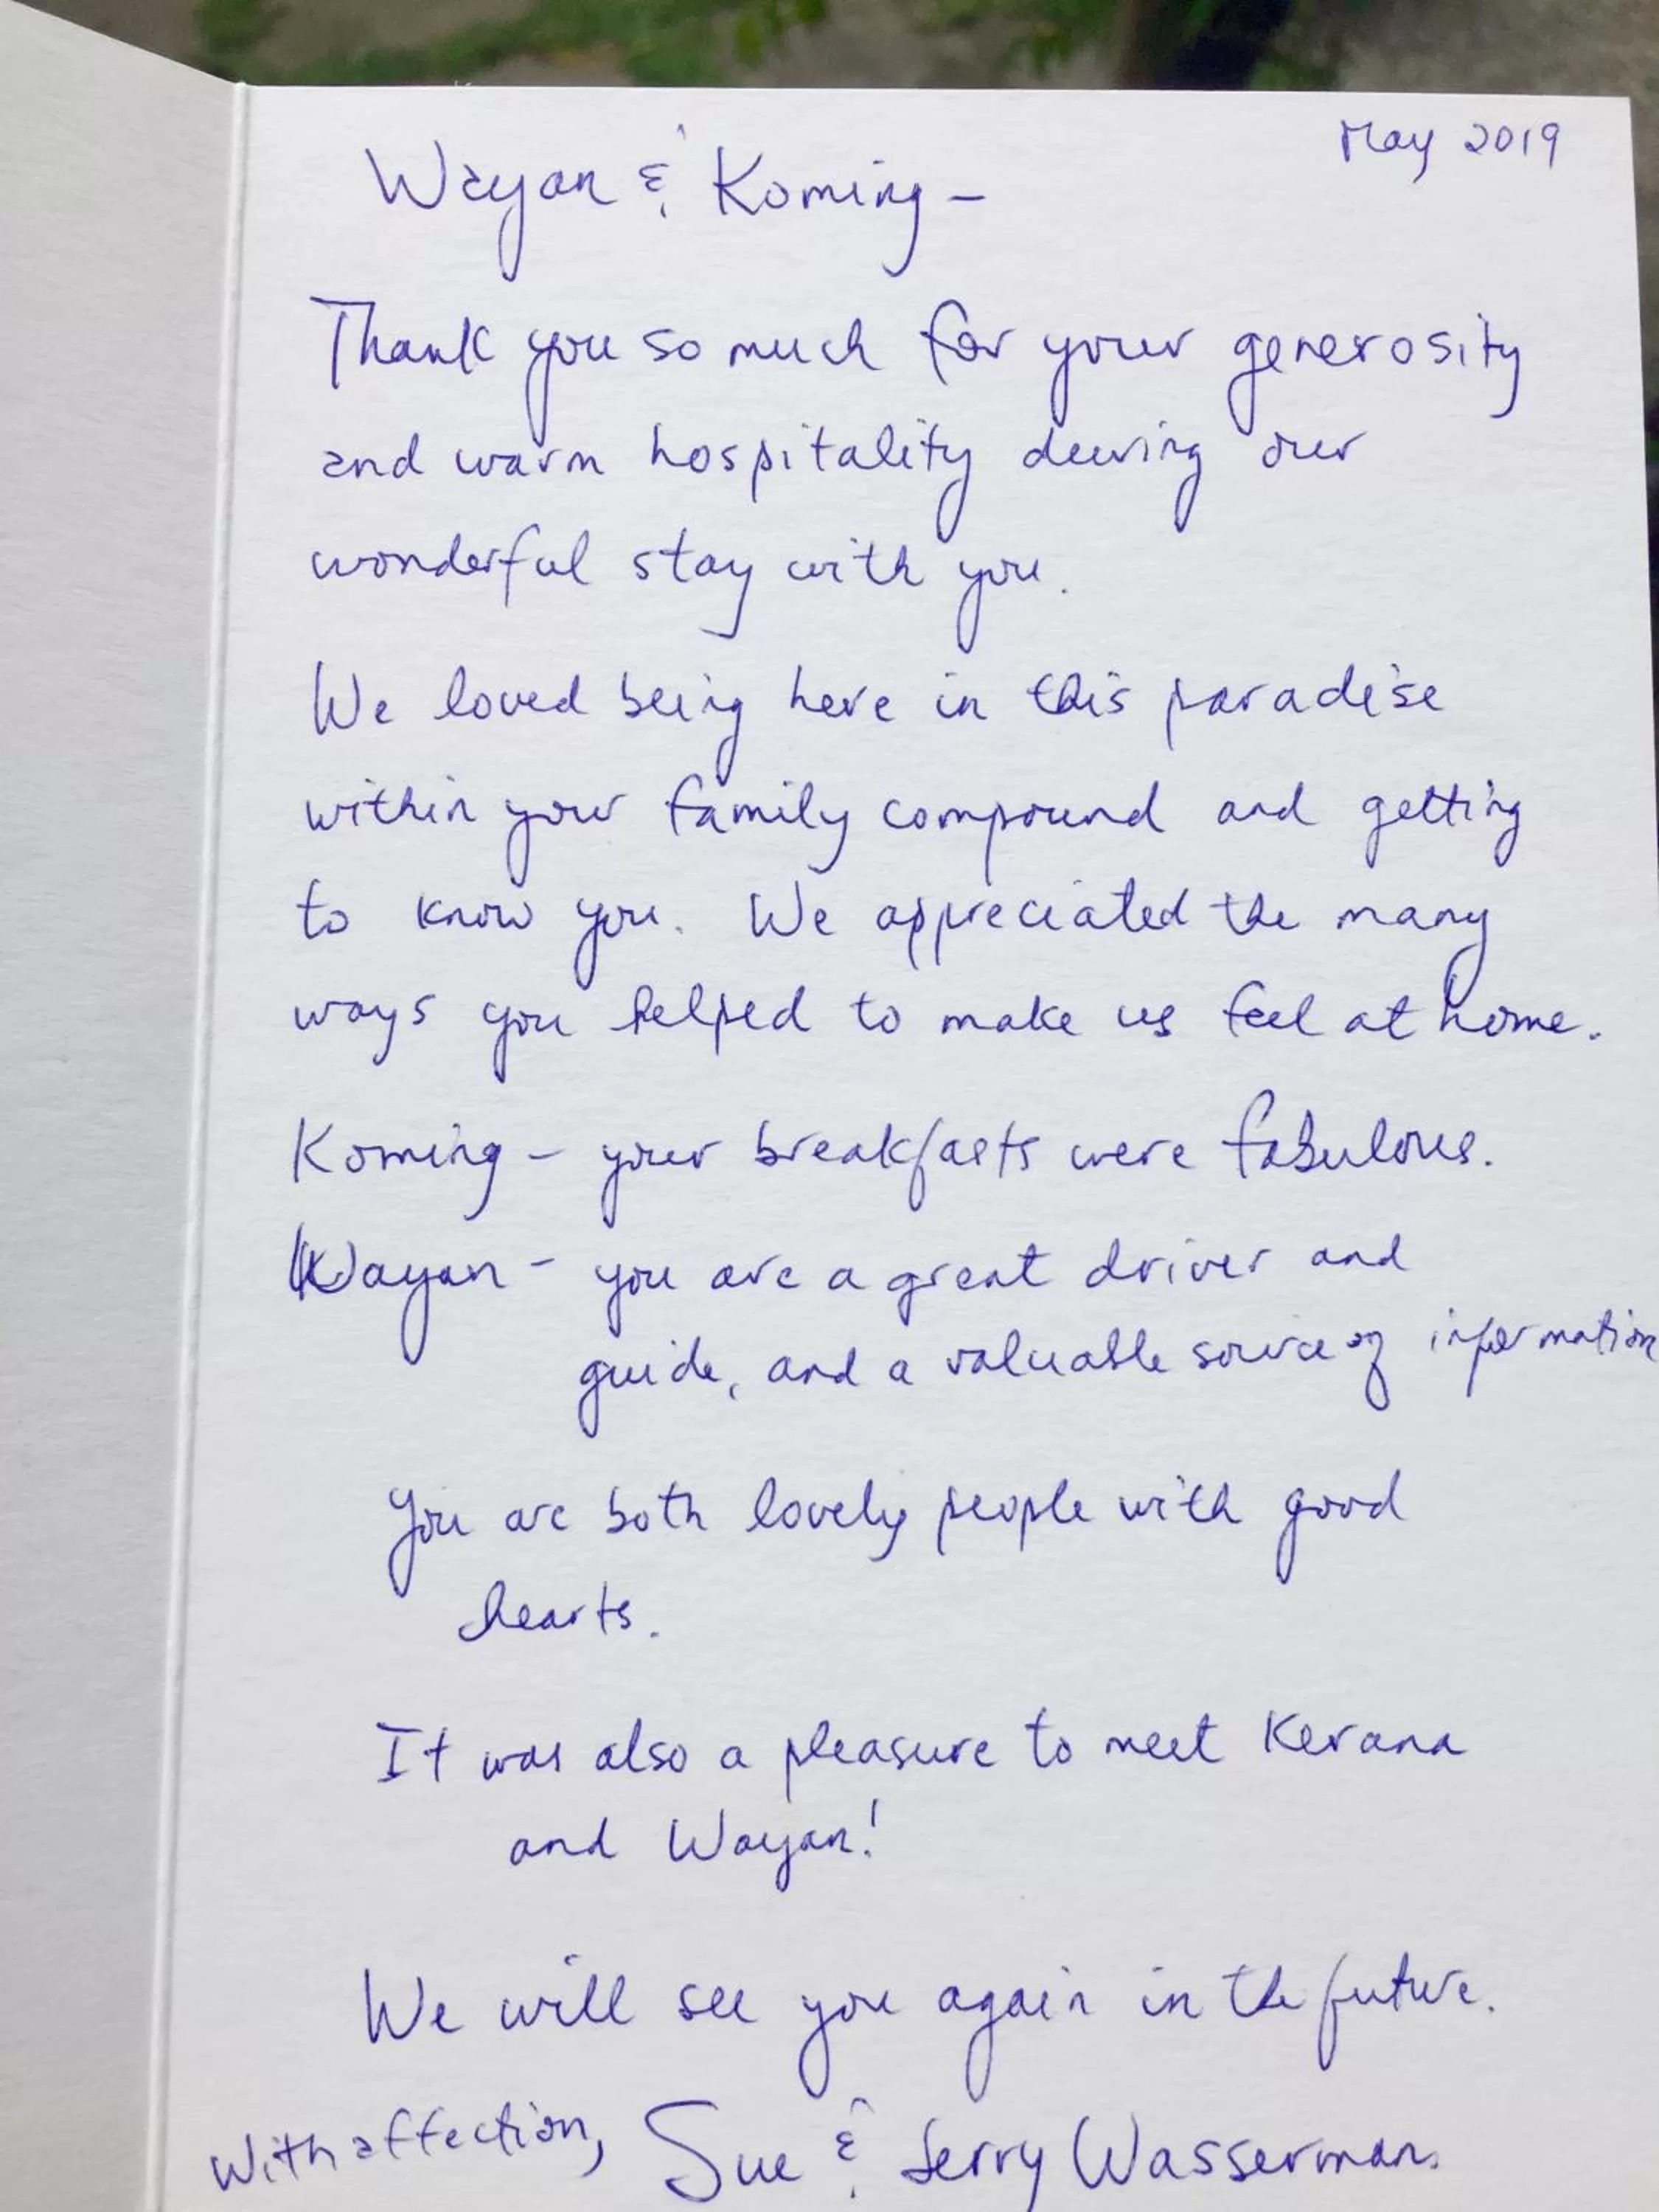 May 2019
Wayan & Koming -
Thank you so much for your generosity
and warm hospitality during our
wonderful stay with you.
We loved being here in this paradise
within your family compound and getting
to know you. We appreciated the many
ways you helped to make us feel at home.
Koming - your breakfasts were fabulous.
Wayan - you are a great driver and
guide, and a valuable source of information
You are both lovely people with good
hearts.
It was also a pleasure to meet Kerana
and Wayan!
We will see you again in the future.
With affection, Sue & Jerry Wasserman.